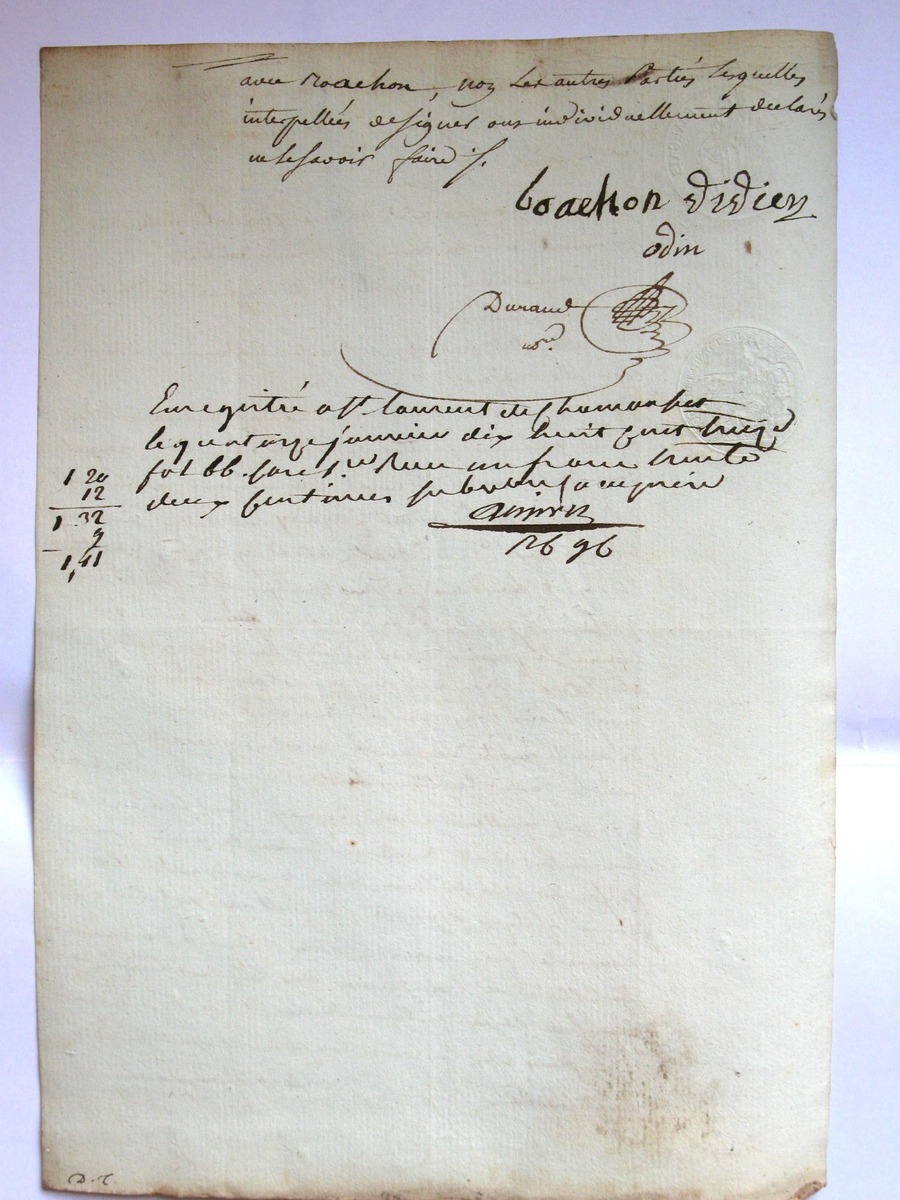 avec Roachon, non Les autres Parties Lesquelles
interpellées de signer ont individuellement declarés
ne le savoir faire ./.
boachon didier
odin
Durand
nore.
Enregistré a St. laurent de Chamousset
le quatorze janvier dix huit cent treize
fol 66 Reçu un franc trente
deux Centimes
1 20
12
1.32
9
1,41
26 96
D. T.